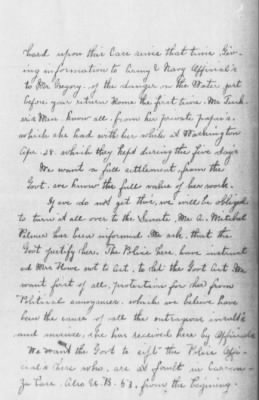 hard upon this Case since that time, Giv-
ing information to Army & Navy Official's
to Mr. Gregory, of the danger on the Water, just
before your return Home the first time. Mr
Men know all, from her private paper's,
which she had with her while at Washington
Apr. 28. which they kept during the five days
We want a full settlement, from the
Govt. we know the full value of her work.
If we do not get this, we will be obliged
to turn it all over to the Senate. Mr. A. Mitchel
Palmer has been informed. We ask, that the
Gov't justify here. The Police here, have instruct-
ed Mrs. Howe not to Act, to let the Govt Act. We
want first of all, protection for her from
Political annoyance, which we believe have
been the cause of all the outrageous insult's
and she has received here by Officials
We want the Govt to sift the Police Offi-
cial's here who, are at fault in
Case. Also U-B. 53, from the begining.